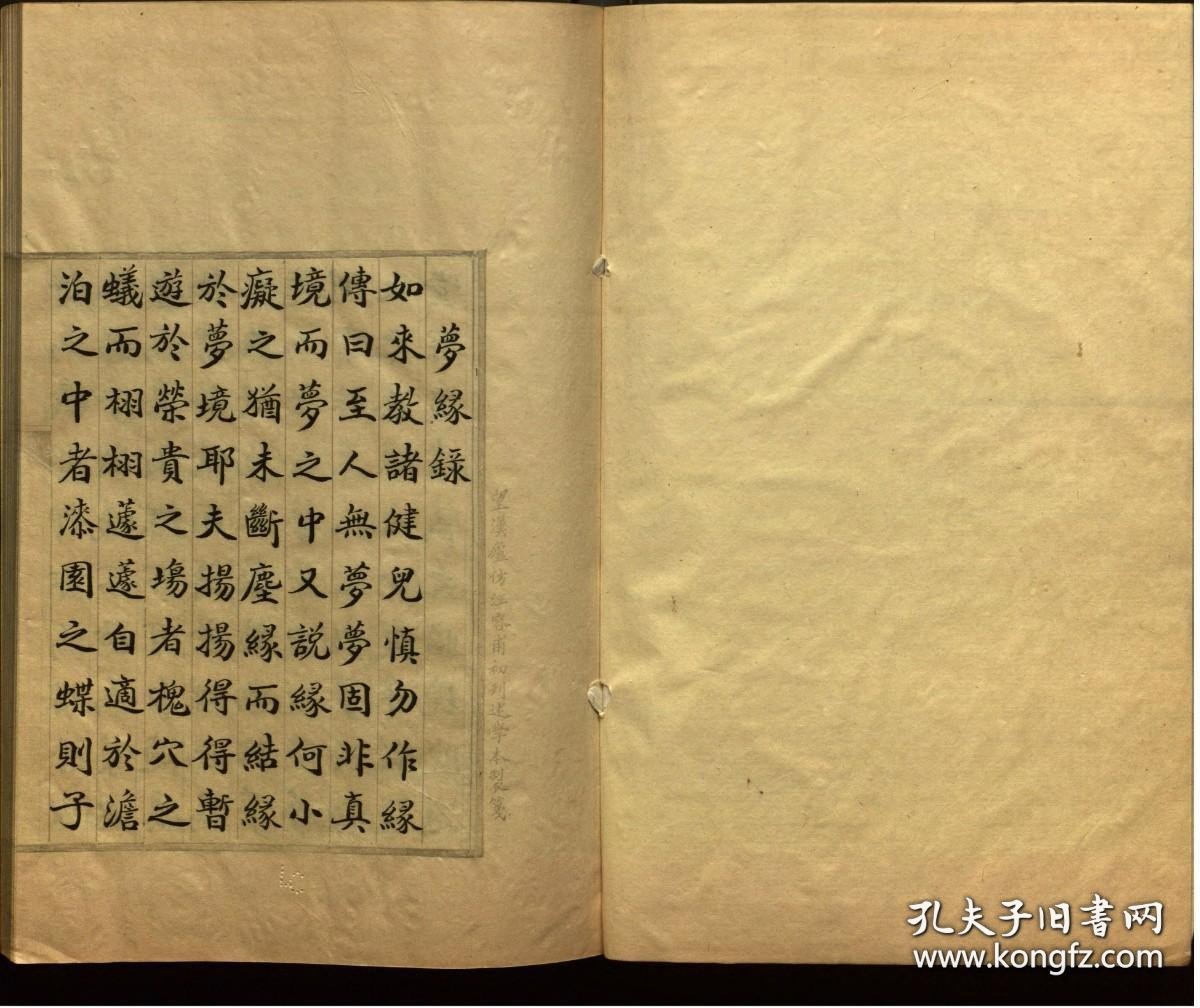 夢緣錄
如來教諸健兒慎勿作緣
傳曰至人無夢夢固非真
境而夢之中又説緣何小
癡之猶未斷塵緣而結緣
於夢境耶夫揚揚得得暫
遊於榮貴之塲者槐穴之
蟻而栩栩蘧蘧自適於澹
泊之中者漆園之蝶則子
望漢廬仿汪容甫初刊述學本製箋
孔夫子旧书网
www.kongfz.com